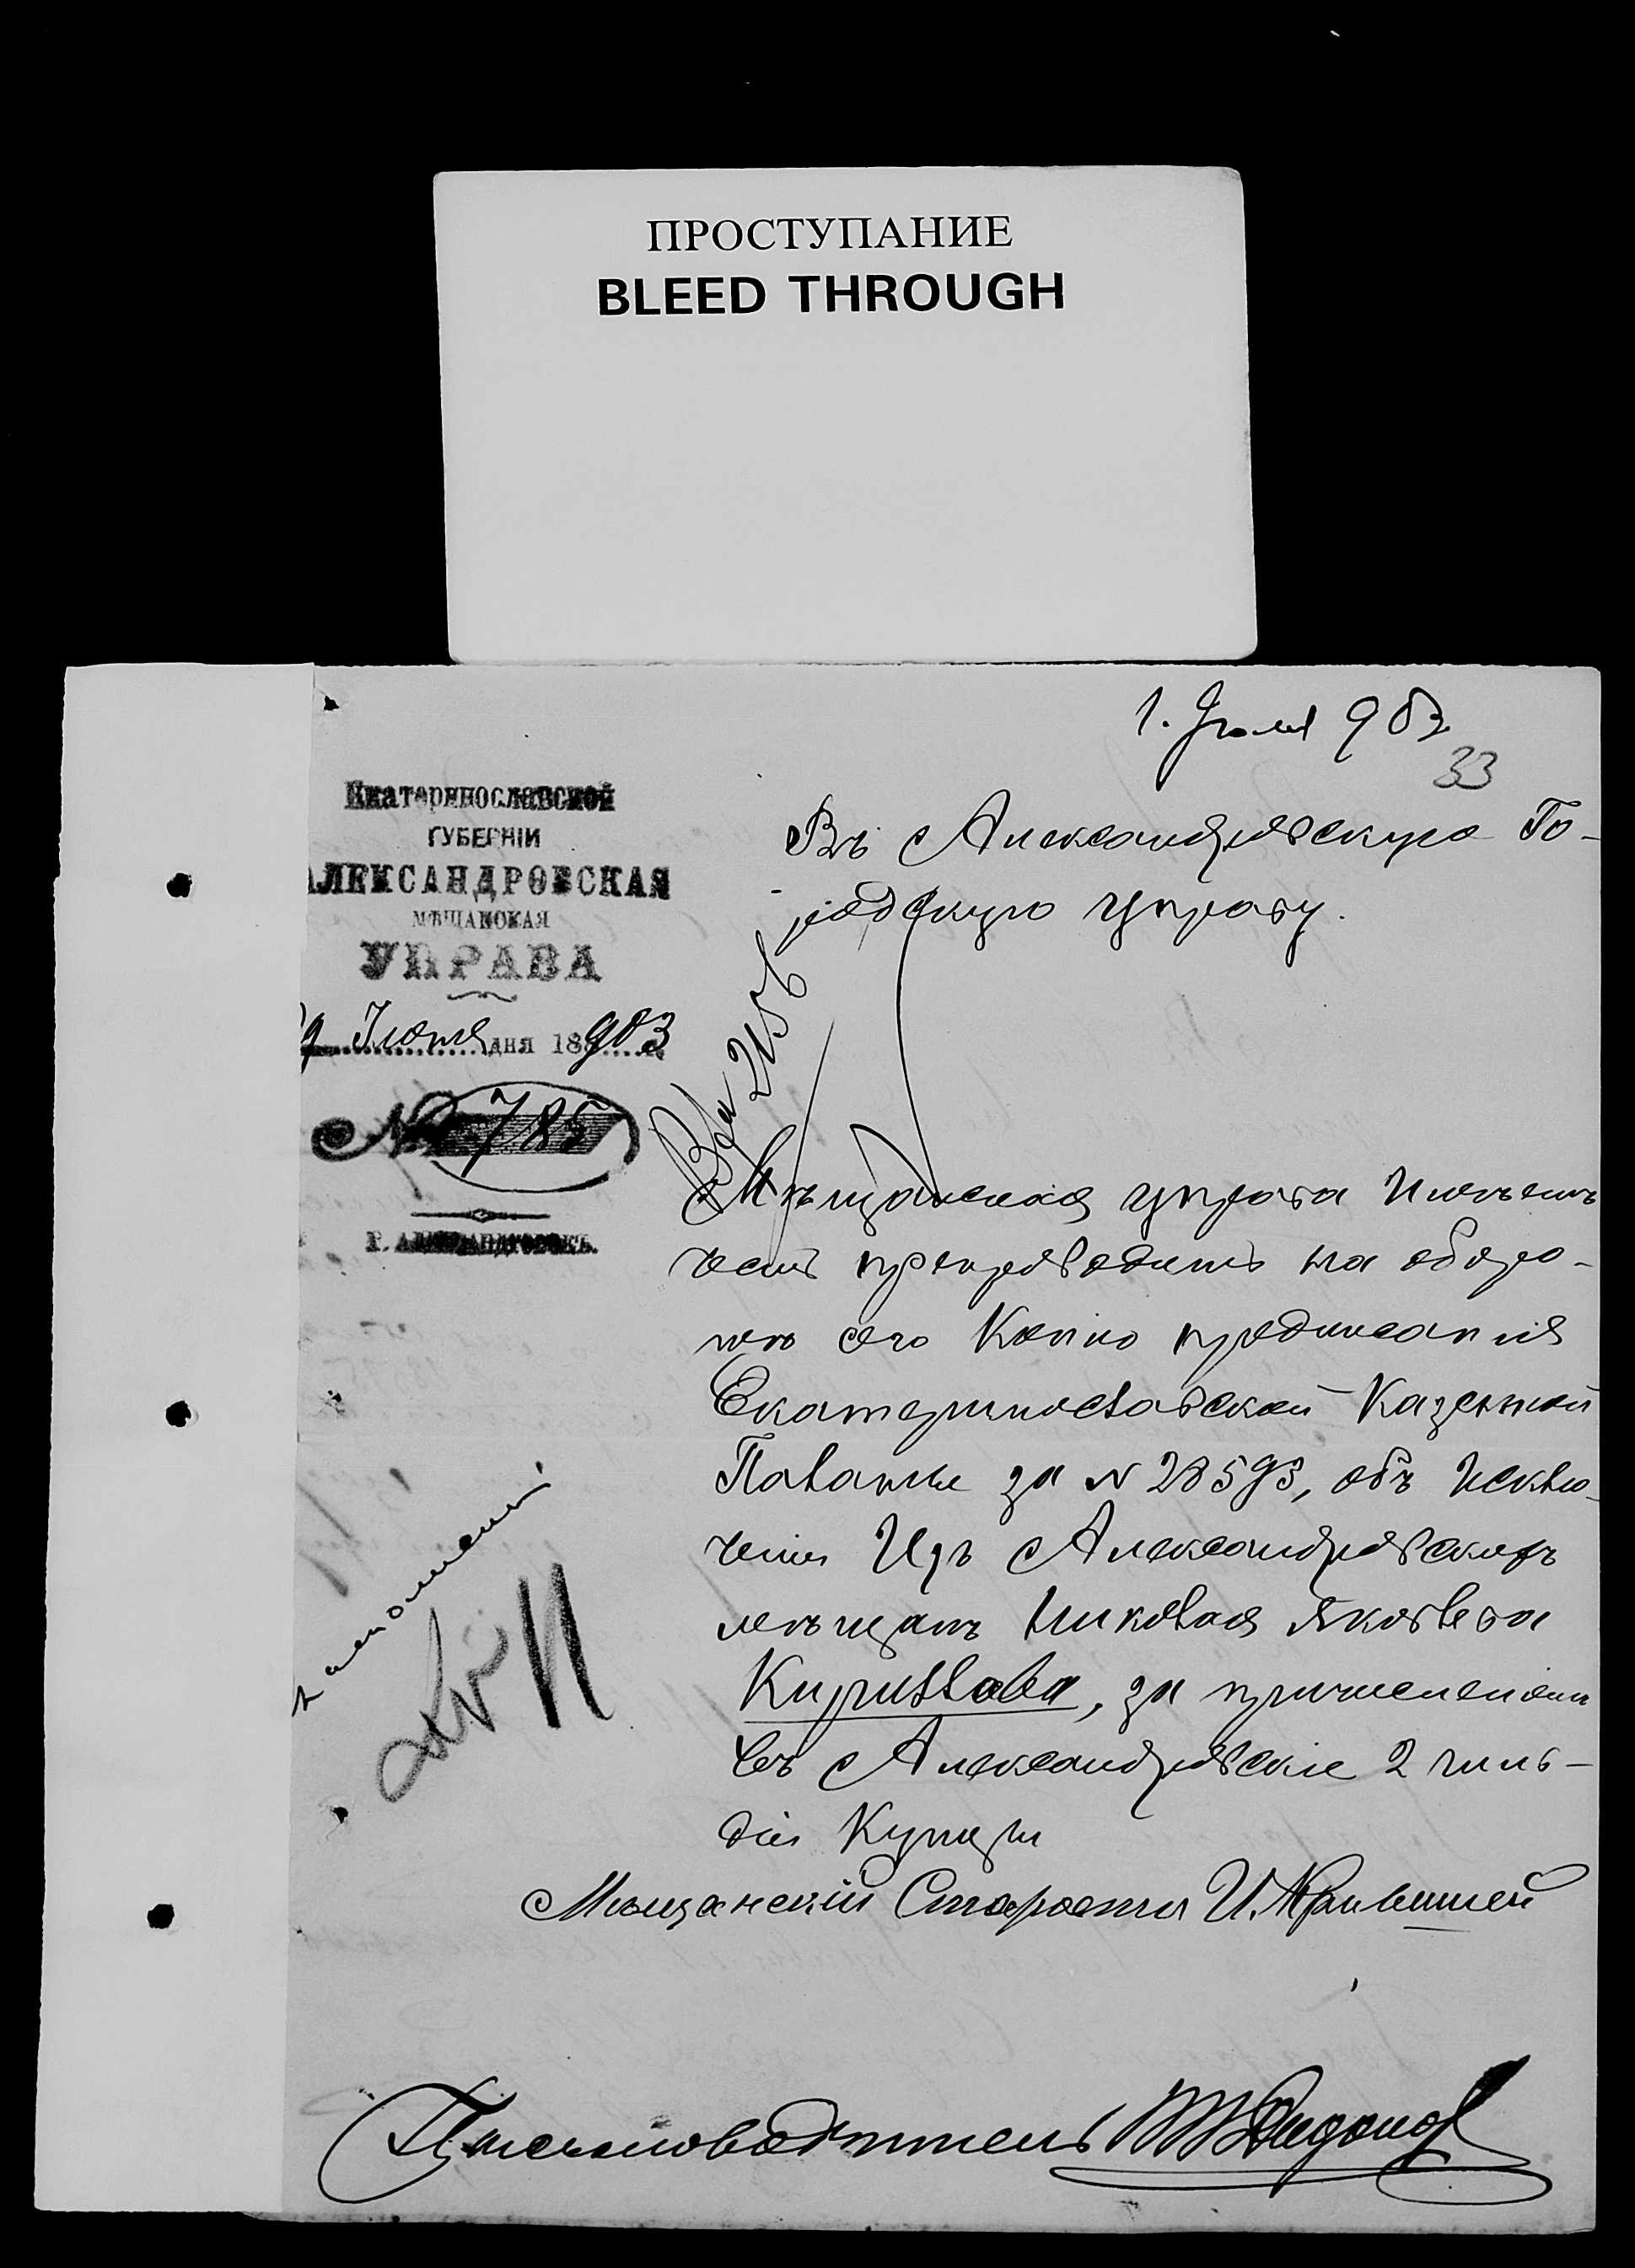 ПРОСТУПАНИЕ
BLEED THROUGH
1. Іюля 903
33
Екатеринославской
ГУБЕРНІИ
АЛЕКСАНДРОВСКАЯ
МѢЩАНСКАЯ
УПРАВА
Іюня дня 18 903
№ 785
Г. АЛЕКСАНДРОВСКЪ.
Въ Александровскую Го-
родскую Управу.
Вх 2156
Мѣщанская Управа Имѣетъ
честь препроводить на оборо-
тѣ сего Копію предписанія
Екатеринославской Казенной
Палаты за № 28593, объ Исклю-
ченіи Изъ Александровскихъ
мѣщанъ Николая Яковлева
Кириллова, за причисленіемъ
въ Александровскіе 2 гиль-
діи Купцы
Мѣщанскій Староста И.
Письмоводитель